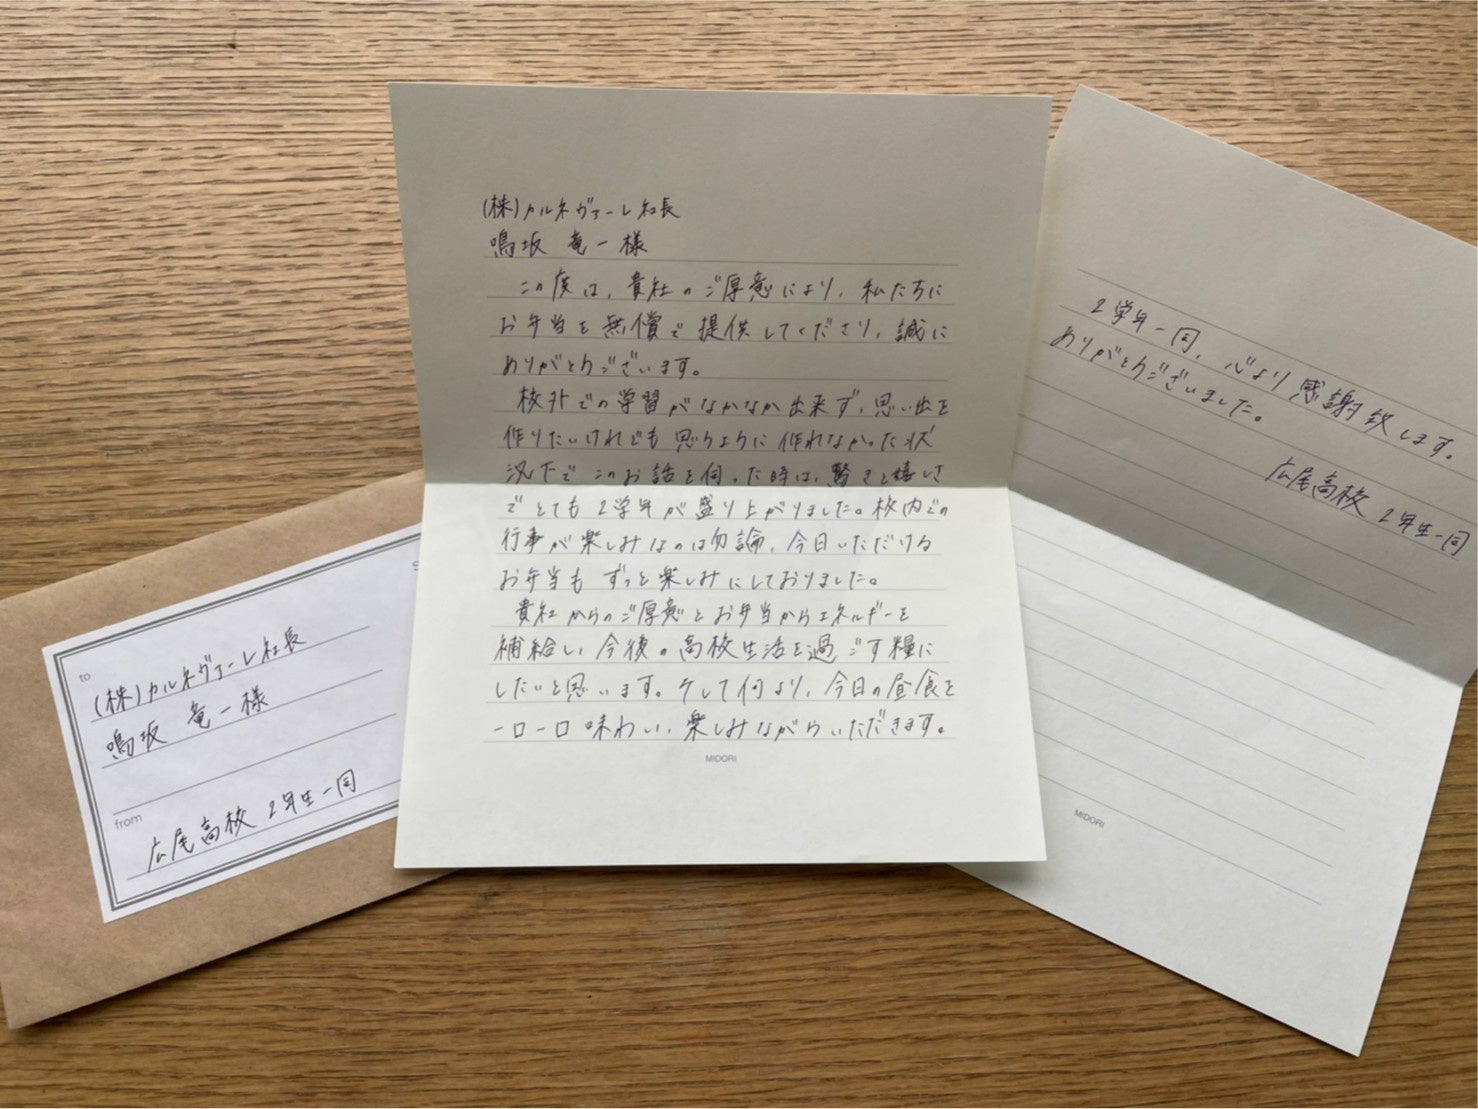 (株)カルネヴァーレ社長
鳴坂 竜一様
この度は、貴社のご厚意により、私たちに
お弁当を無償で提供してくださり、誠に
ありがとうございます。
校外での学習がなかなか出来ず、思い出を
作りたいけれども思うように作れなかった状
況下でこのお話を伺った時は、驚きと嬉しさ
でとても2学年が盛り上がりました。校内での
行事が楽しみなのは勿論、今日いただける
お弁当もずっと楽しみにしておりました。
貴社からのご厚意とお弁当からエネルギーを
補給し、今後の高校生活を過ごす糧に
したいと思います。そして何より、今日の昼食を
一口一口味わい、楽しみながらいただきます。
MIDORI
2学年一同、心より感謝致します。
ありがとうございました。
広尾高校 2年生一同
MIDORI
to
(株)カルネヴァーレ社長
鳴坂 竜一様
from
広尾高校 2年生一同